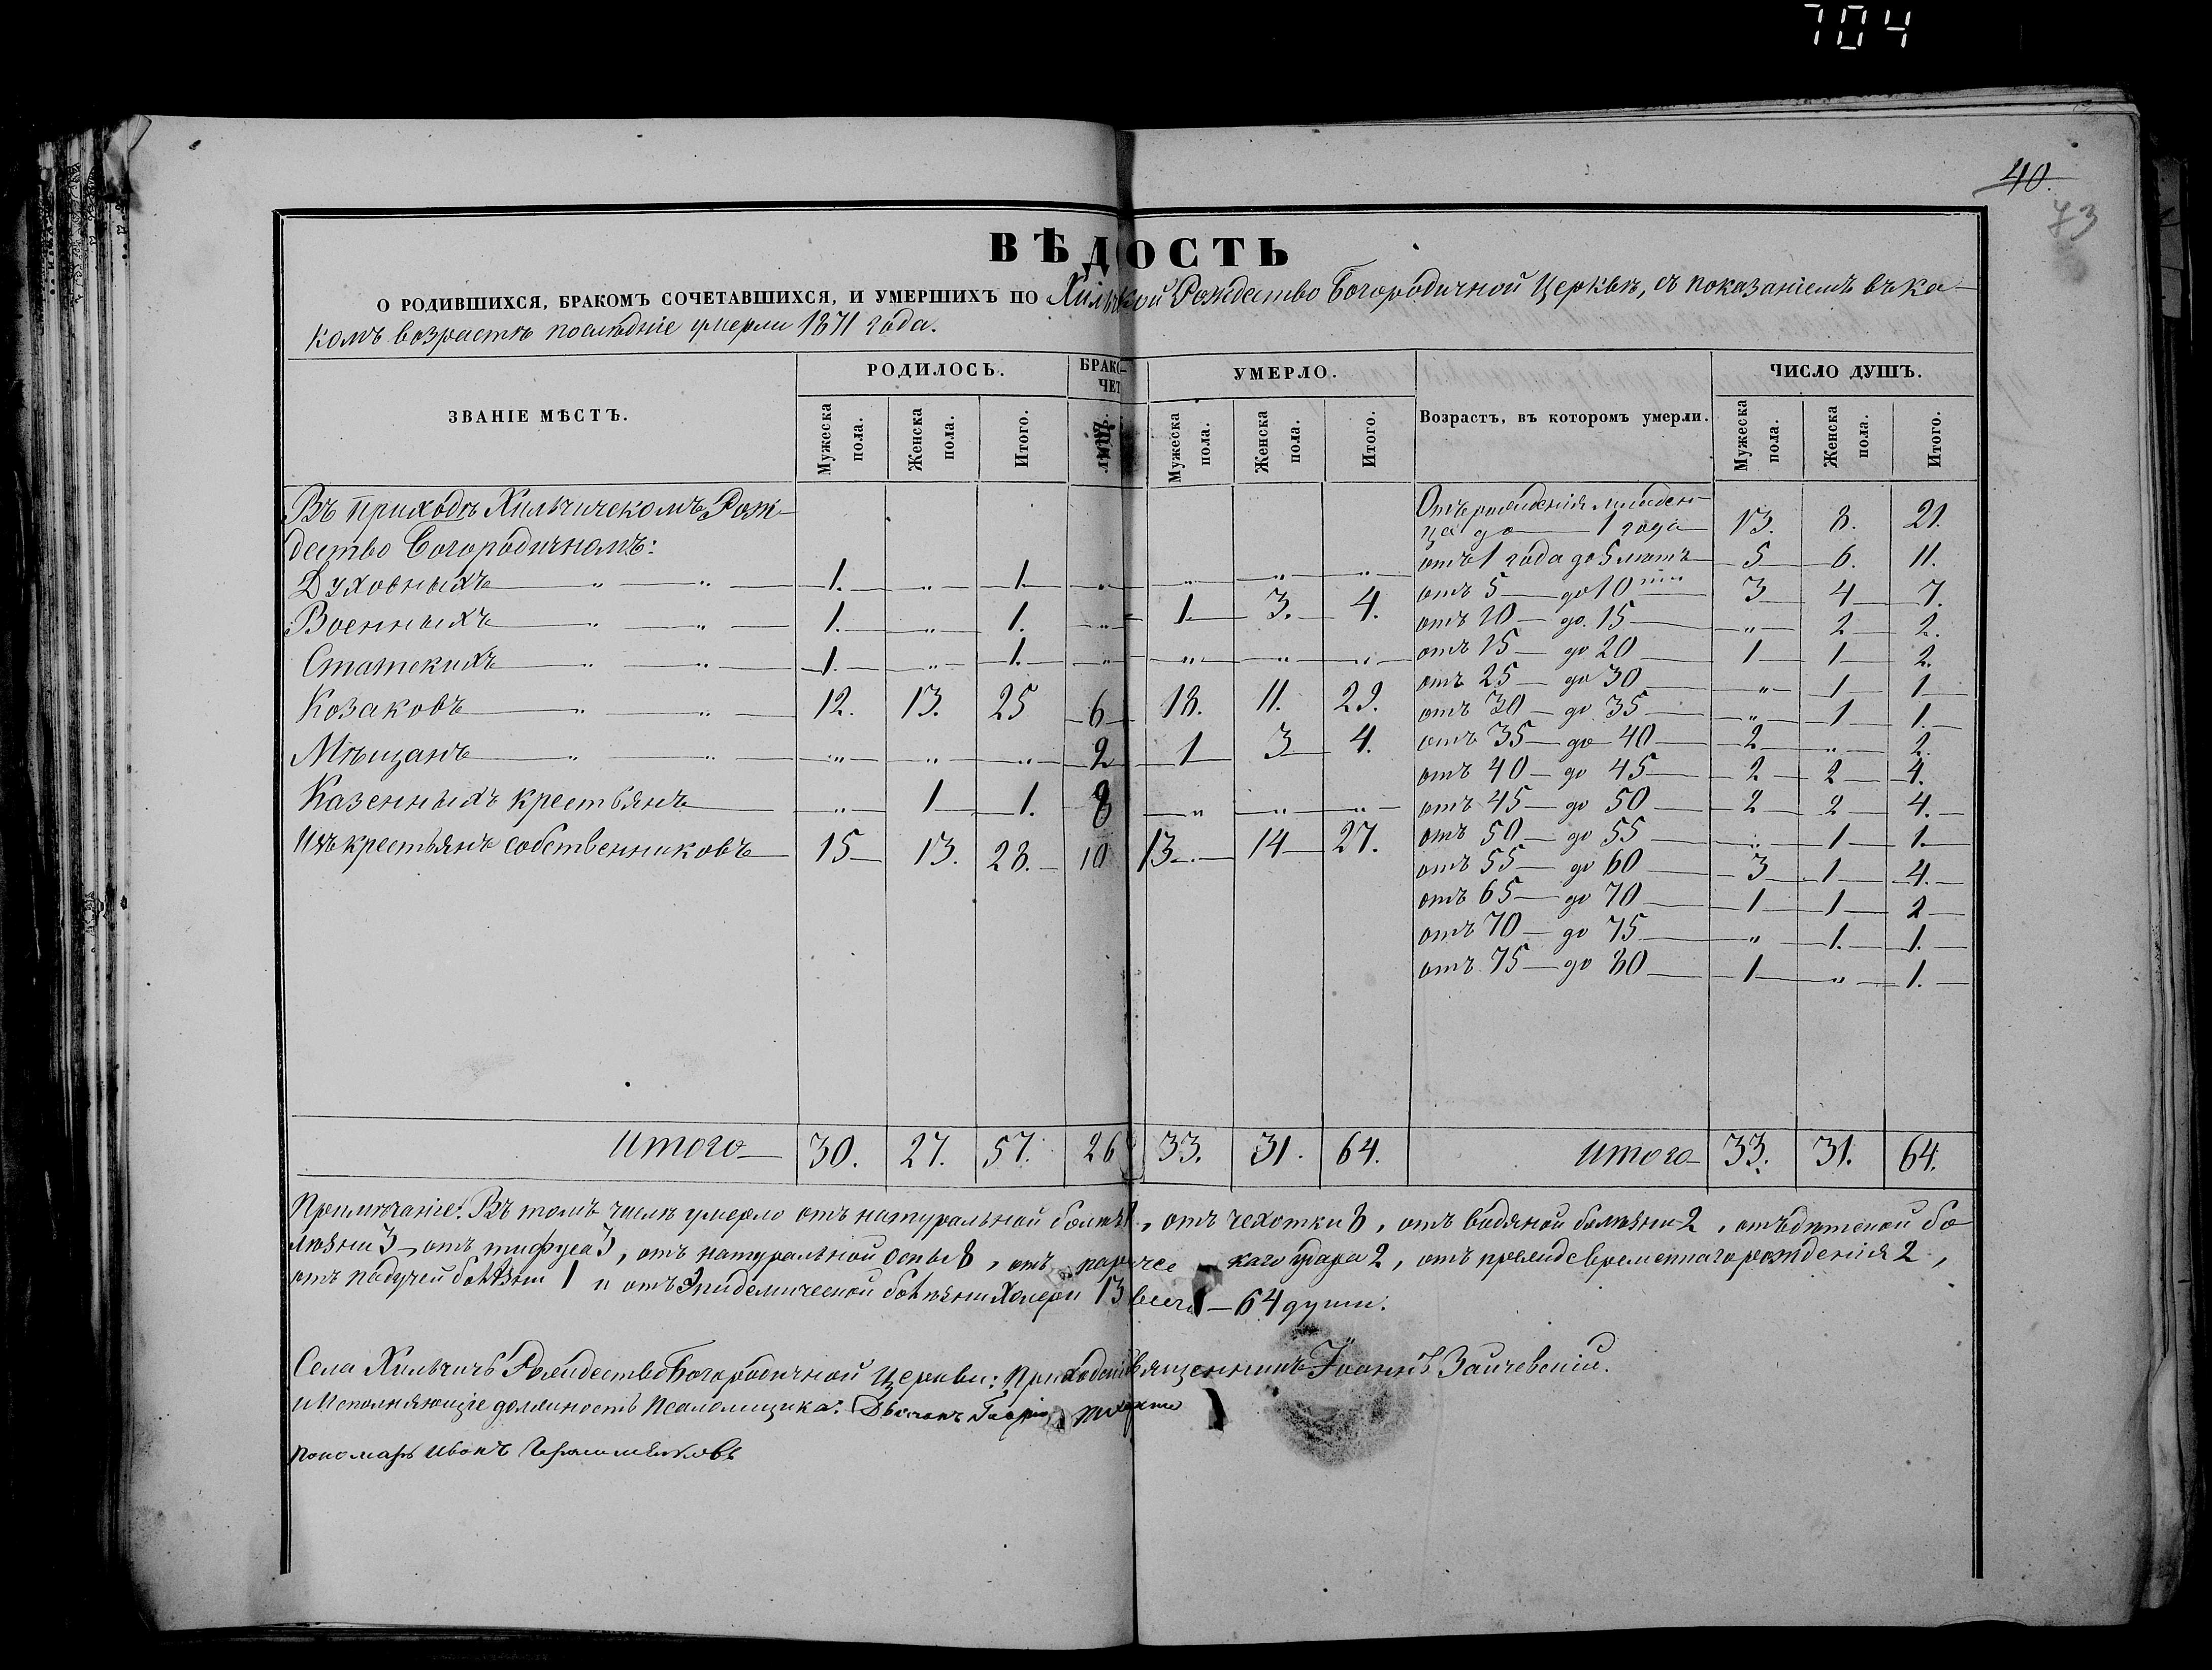 704
40.
73
ВѢДОСТЬ
О РОДИВШИХСЯ, БРАКОМЪ СОЧЕТАВШИХСЯ, И УМЕРШИХЪ ПО Рождество Богородичной Церкви, съ показаніемъ въ ка-
комъ возрастѣ послѣдніе умерли 1871 года.
ЗВАНІЕ МѢСТЪ. РОДИЛОСЬ. БРАКО- ЧЕТ УМЕРЛО. Возрастъ, въ которомъ умерли. ЧИСЛО ДУШЪ.
Мужеска пола. Женска пола. Итого. Мужеска пола. Женска пола. Итого. Мужеска пола. Женска пола. Итого.
Въ приходѣ Хильчичскомъ Рож-
дество Богородичномъ:
Духовныхъ — „ — „ — 1. „ 1. „ „ „ „
Военныхъ — „ — „ — 1. „ 1. „ 1. 3. 4.
Статскихъ — „ — „ — 1. „ 1. „ „ „ „
Козаковъ — „ — „ — 12. 13. 25 6 18. 11. 29.
Мѣщанъ — „ — „ — „ „ „ 2 1 3 4.
Казенныхъ крестьянъ — „ 1 1. 8 „ „ „
крестьянъ собственниковъ — 15 13. 28. 10 13 14 27.
Отъ рожденія младен-
ца до — 1 года 13. 8. 21.
отъ 1 года до 5 лѣтъ 5 6. 11.
отъ 5 — до 10 3 4 7.
отъ 10 — до 15 „ 2 2.
отъ 15 — до 20 1 1 2.
отъ 25 — до 30 „ 1 1
отъ 30 — до 35 „ 1 1.
отъ 35 — до 40 2 „ 2.
отъ 40 — до 45 2 2 4.
отъ 45 — до 50 2 2 4.
отъ 50 — до 55 „ 1 1.
отъ 55 — до 60 3 1 4.
отъ 65 — до 70 1 1 2
отъ 70 — до 75 „ 1. 1.
отъ 75 — до 80 1 „ 1.
Итого 30. 27. 57. 26 33. 31. 64. Итого 33. 31. 64.
Примѣчаніе: Въ томъ числѣ умерло отъ натуральной , отъ чехотки 8, отъ водяной болѣзни 2, отъ дѣтской бо-
лѣзни 3, отъ тифуса 3, отъ натуральной оспы 8, отъ удара 2, отъ преждевременнаго рожденія 2,
отъ падучей болѣзни 1 и отъ Эпидемической болѣзни Холеры 13 всего — 64 души.
Села Хильчичъ Рождество Богородичной Церкви: Священникъ Іоаннъ Зайчевскій.
и Исполняющіе должность Псаломщика:
пономарь Иванъ